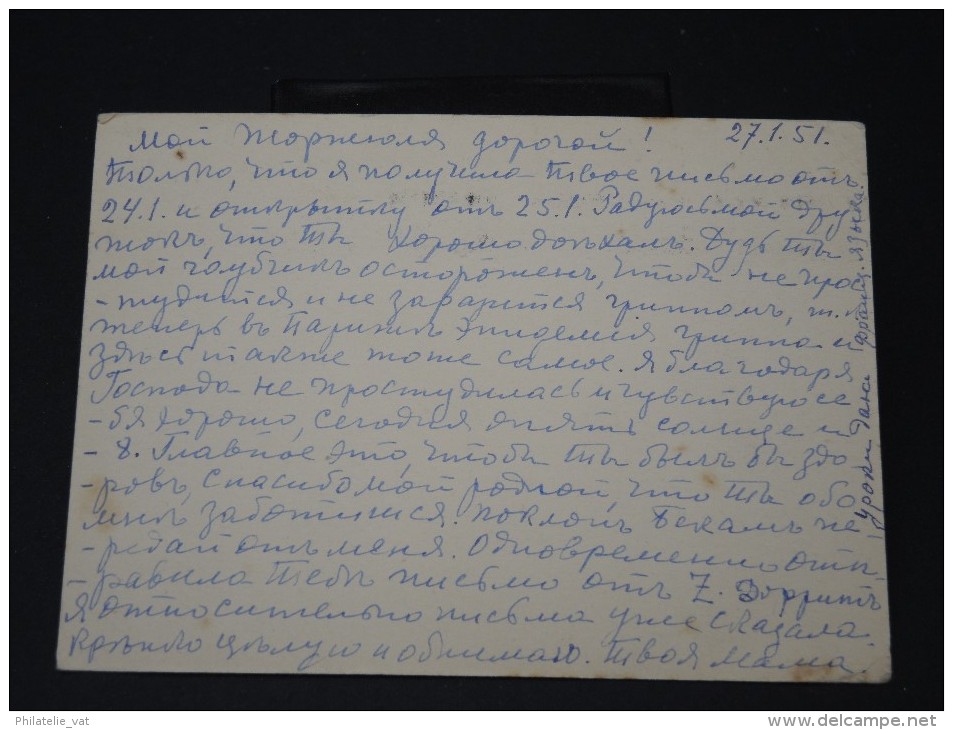 27.1.51.
Мой Жоржюля дорогой!
Только, что я получила твое письмо отъ
24.1. и открытку отъ 25.1. Радуюсь мой дру
жокъ, что ты хорошо доѣхалъ. Будь ты
мой голубчикъ остороженъ, чтобы не прос
-тудится и не заразится гриппомъ, т.к.
теперь въ Парижѣ эпидемия гриппа и
здѣсь также тоже самое. Я благодаря
Господа не простудилась и чувствую се
-бя хорошо, сегодня опять солнце и
- 8. Главное это, чтобы ты былъ бы здо
-ровъ, спасибо мой родной, что ты обо
мнѣ заботишся. Поклонъ Бекамъ пе
-редай отъ меня. Одновременно отп-
-равила тебѣ письмо отъ Z. Дорритъ
я относительно письма уже сказала.
Крѣпко цѣлую и обнимаю. Твоя Мама.
уроки франц. языка.
Philatelie_vat
http://www.delcampe.net